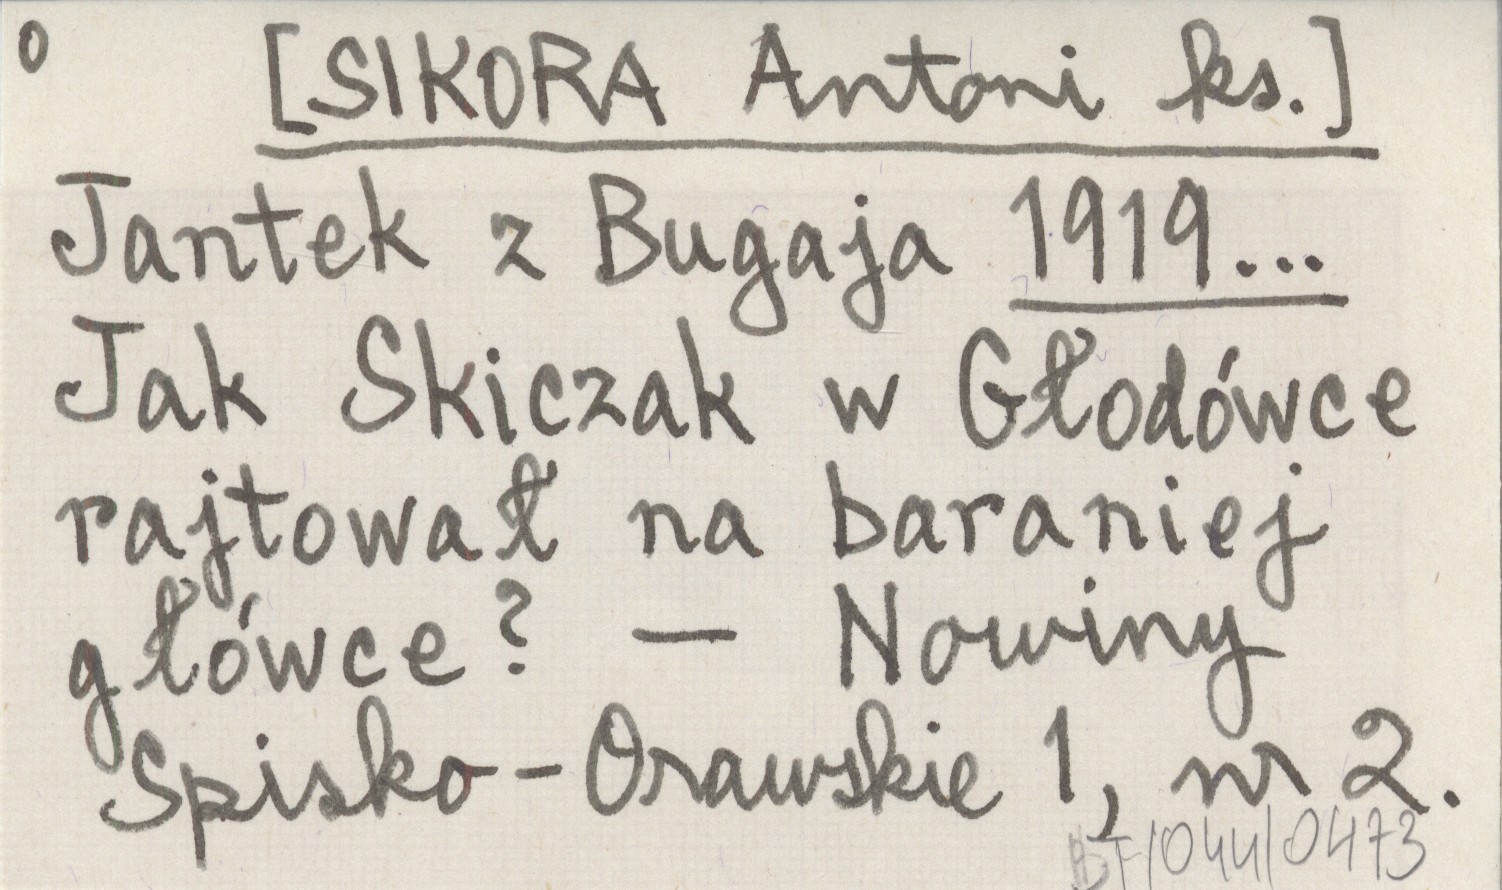 0
[SIKORA Antoni ks.]
Jantek z Bugaja 1919...
Jak Skiczak w Głodówce
rajtował na baraniej
główce? — Nowiny
Spisko-Orawskie 1, nr 2.
BT/044/0473